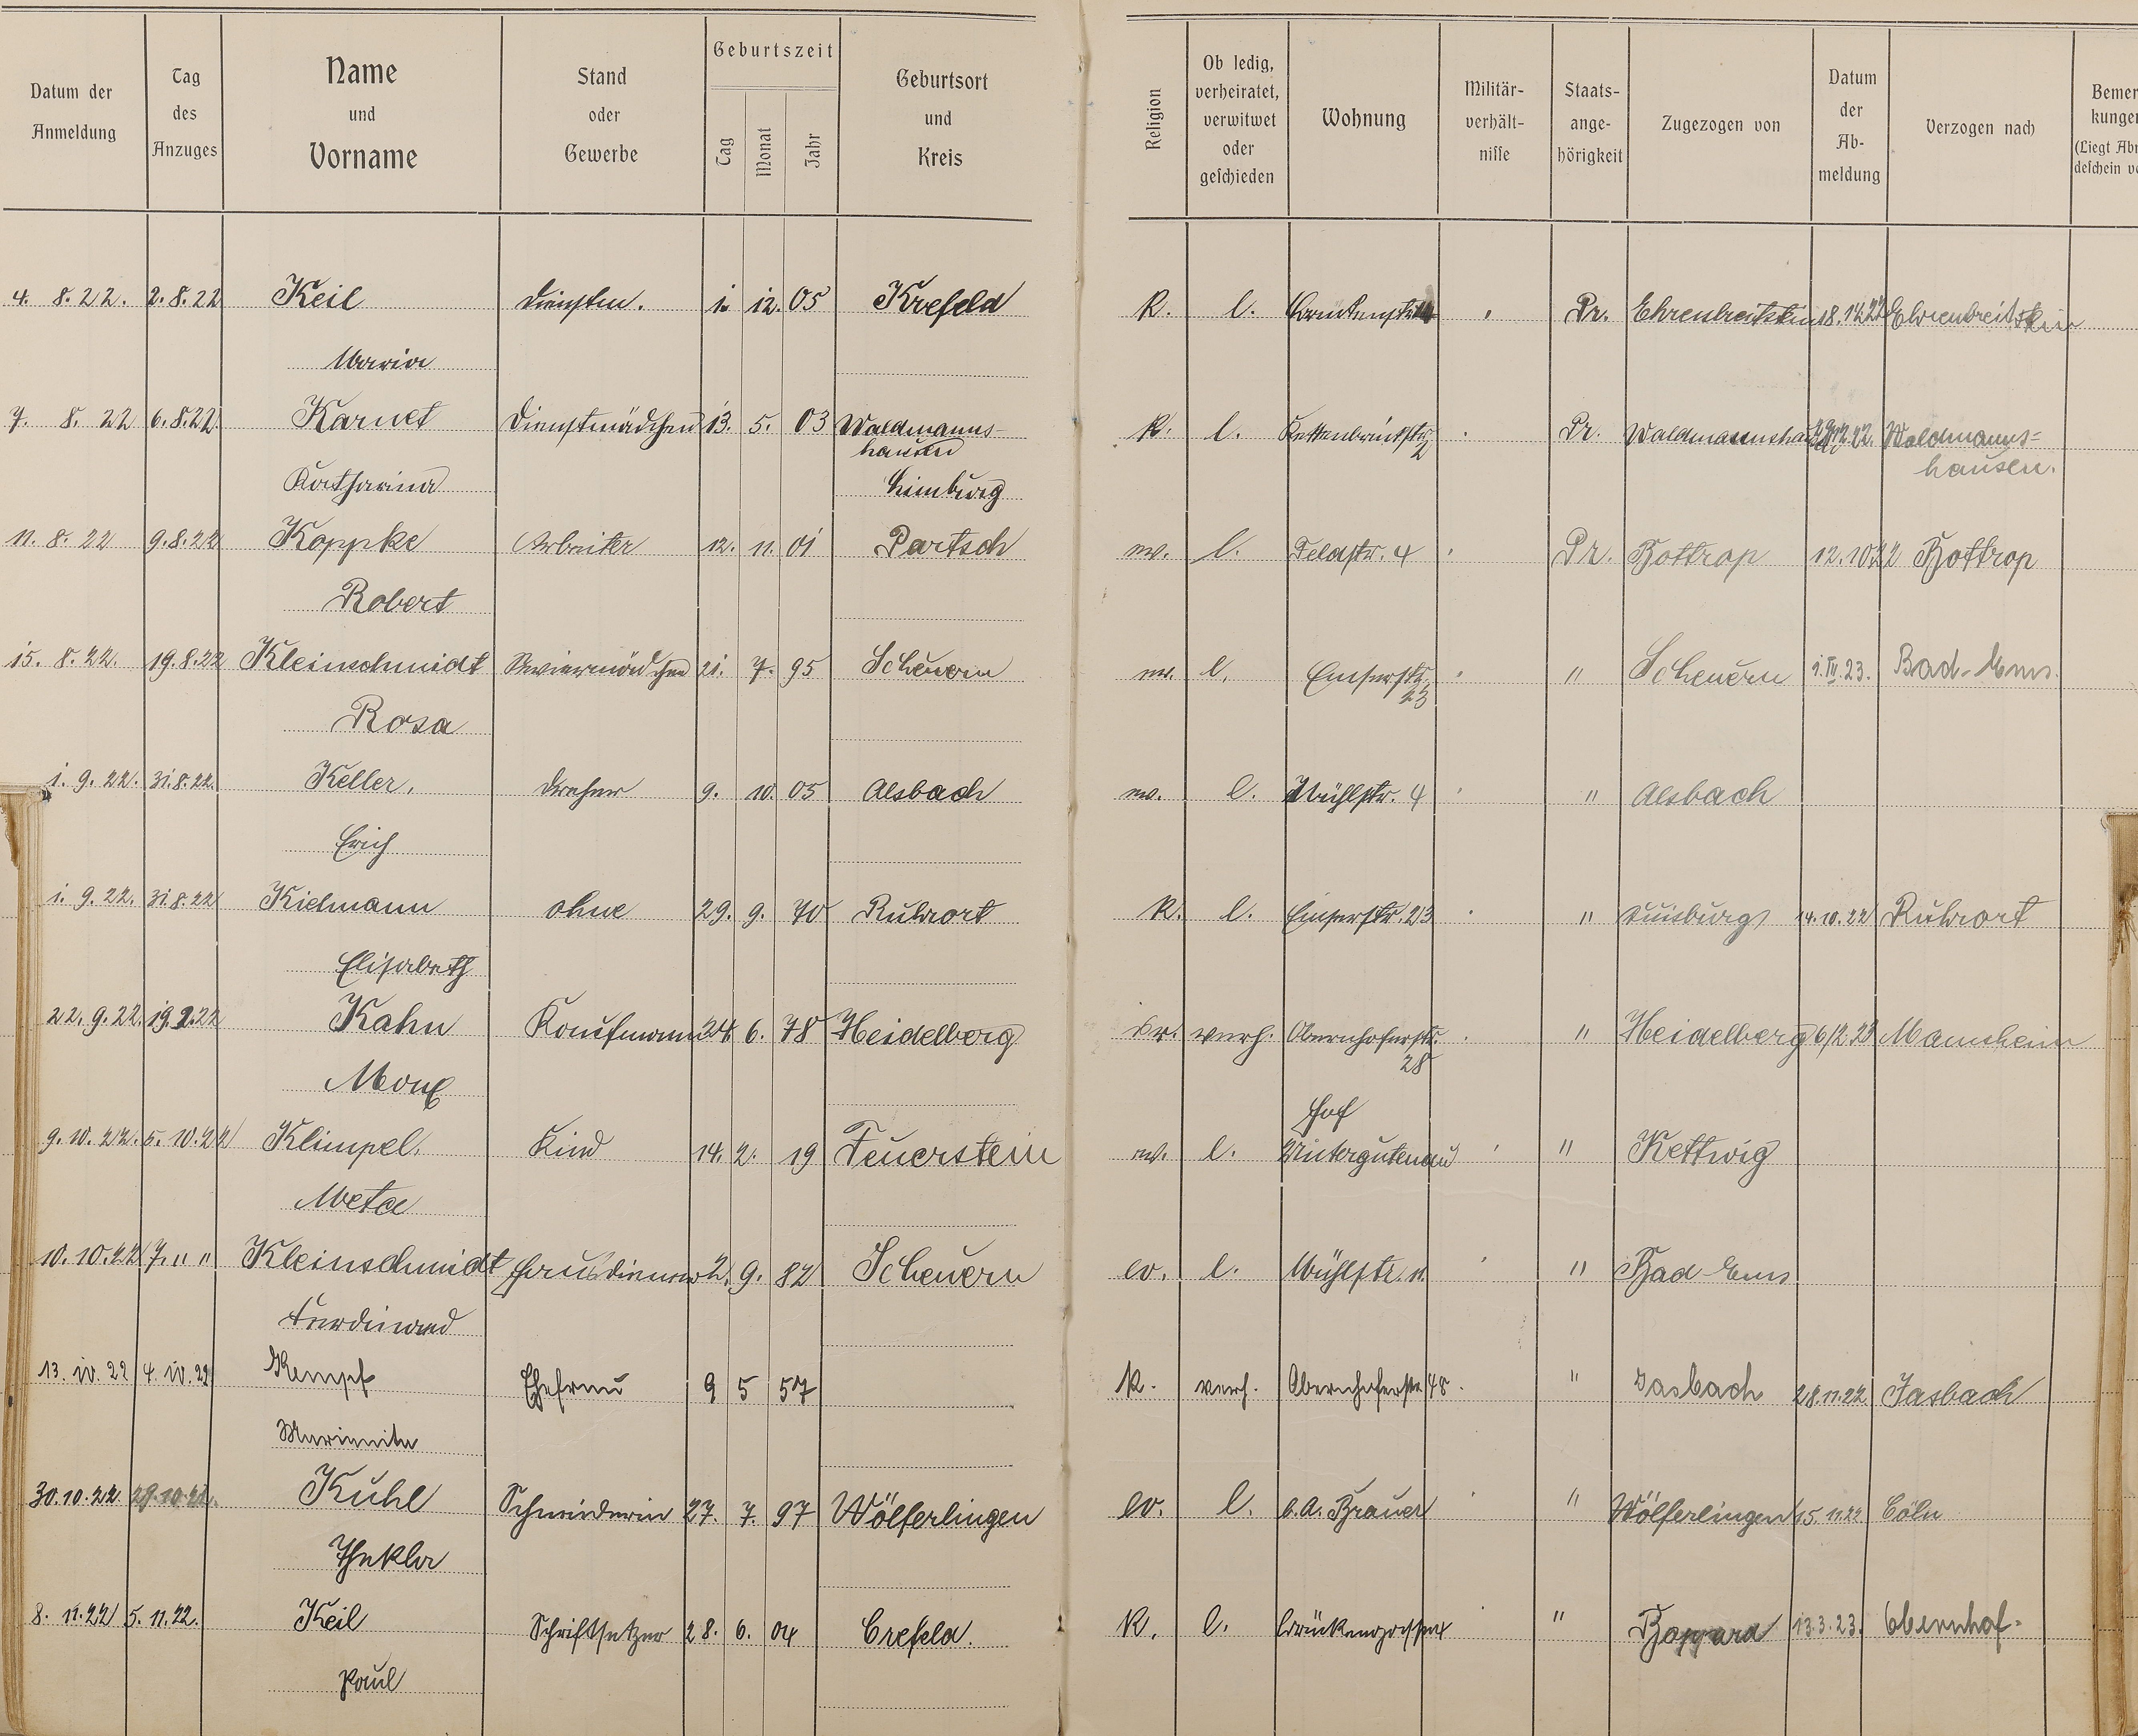 Datum der Anmeldung | Tag des Anzuges | Name und Vorname | Stand oder Gewerbe | Geburtszeit Tag Monat Jahr | Geburtsort und Kreis | Religion | Ob ledig, verheiratet, verwitwet oder geschieden | Wohnung | Militär-verhält-nisse | Staats-ange-hörigkeit | Zugezogen von | Datum der Ab-meldung | Verzogen nach | Bemer kungen (Liegt Abm deschein vo
4. 8. 22. 2. 8. 22 Keil 1. 12. 05 Krefeld K. l. Pr. Ehrenbreitstein Ehrenbreitstein
Maria
7. 8. 22 6. 8. 22. Karnet Dienstmädchen 13. 5. 03 Waldmanns- K. l. Kettenbrückstr. Pr. Waldmannshausen Waldmanns=
hausen 2 hausen.
Katharina Limburg
11. 8. 22 9. 8. 22 Koppke Arbeiter 12. 11. 01 Partsch ev. l. Feldstr. 4 Pr. Bottrop 12. 10. 22 Bottrop
Robert
15. 8. 22. 19. 8. 22 Kleinschmidt Serviermädchen 21. 7. 95 Scheuern ev. l. Emserstr. " Scheuern 1. III. 23. Bad-Ems.
23
Rosa
1. 9. 22. 31. 8. 22. Keller, Dreher 9. 10. 05 Alsbach ev. l. Mühlstr. 4 " Alsbach
Erich
1. 9. 22. 31. 8. 22 Kielmann ohne 29. 9. 70 Ruhrort K. l. Emserstr. 23 " Duisburg 14. 10. 22 Ruhrort
Elisabeth
22. 9. 22. 19. 9. 22 Kahn Kaufmann 24. 6. 78 Heidelberg isr. verh. Obernhoferstr. " Heidelberg 6/2. 23 Mannheim
28
Max
Hof
9. 10. 22. 5. 10. 22 Klimpel, Kind 14. 2. 19 Feuerstein ev. l. " Kettwig
Meta
10. 10. 22 7. " " Kleinschmidt Hausdiener 2. 9. 82 Scheuern ev. l. Mühlstr. 11. " Bad-Ems
Ferdinand
13. 10. 22 4. 10. 22 Kempf Ehefrau 9 5 57 K. verh. Obernhoferstr. 48. " Dasbach 28. 11. 22. Dasbach
30. 10. 22 29. 10. 22. Kuhl Schneiderin 27. 7. 97 Wölferlingen ev. l. b. A. Brauer " Wölferlingen 15. 11. 22. Cöln
Thekla
8. 11. 22 5. 11. 22. Keil Schriftsetzer 28. 6. 04 Crefeld. K. l. " Boppard 13. 3. 23. Obernhof.
Paul